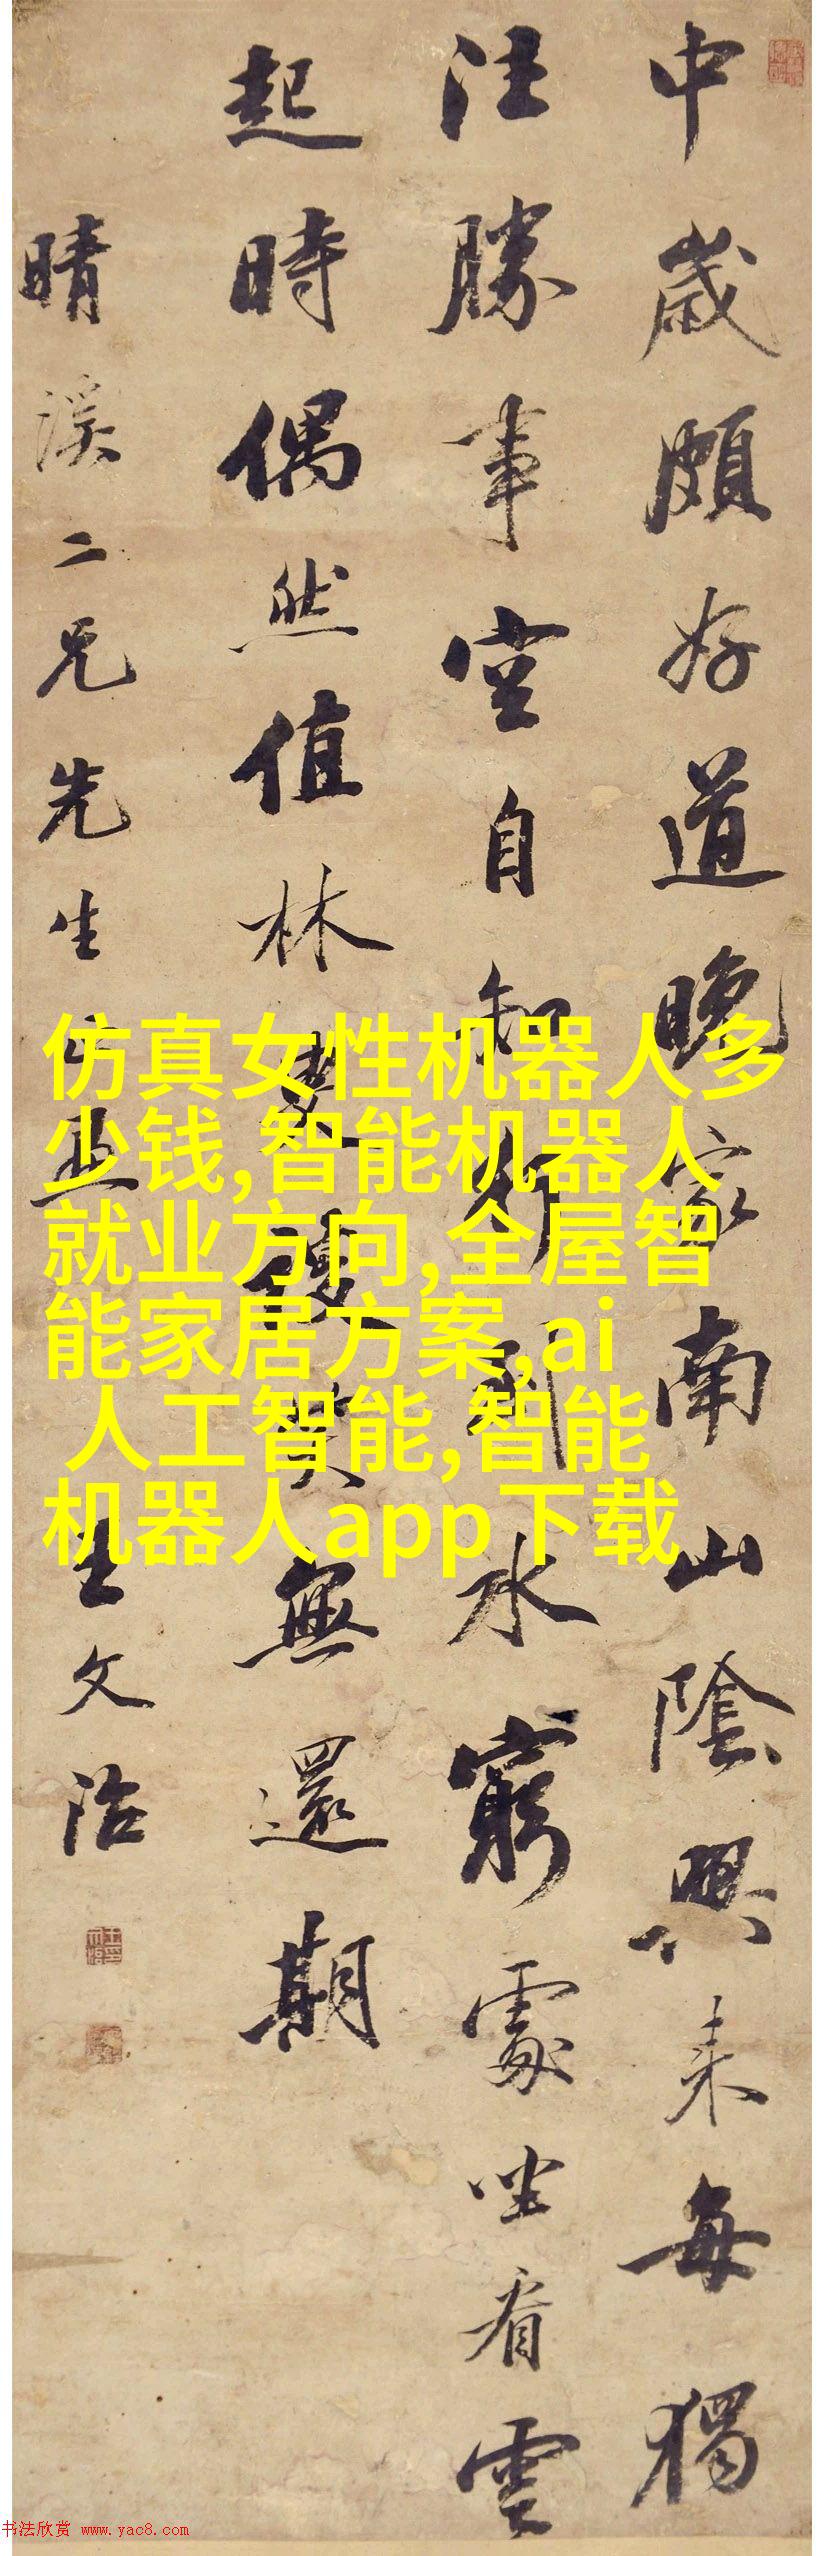 中歲頗好道晚家南山陰興來每獨
往勝事空自知行到水窮處坐看雲
起時偶然值林叟笑無還期
晴溪二兄先生正
王文治
仿真女性机器人多
少钱,智能机器人
就业方向,全屋智
能家居方案,ai
人工智能,智能
机器人app下载
书法欣赏 www.yac8.com